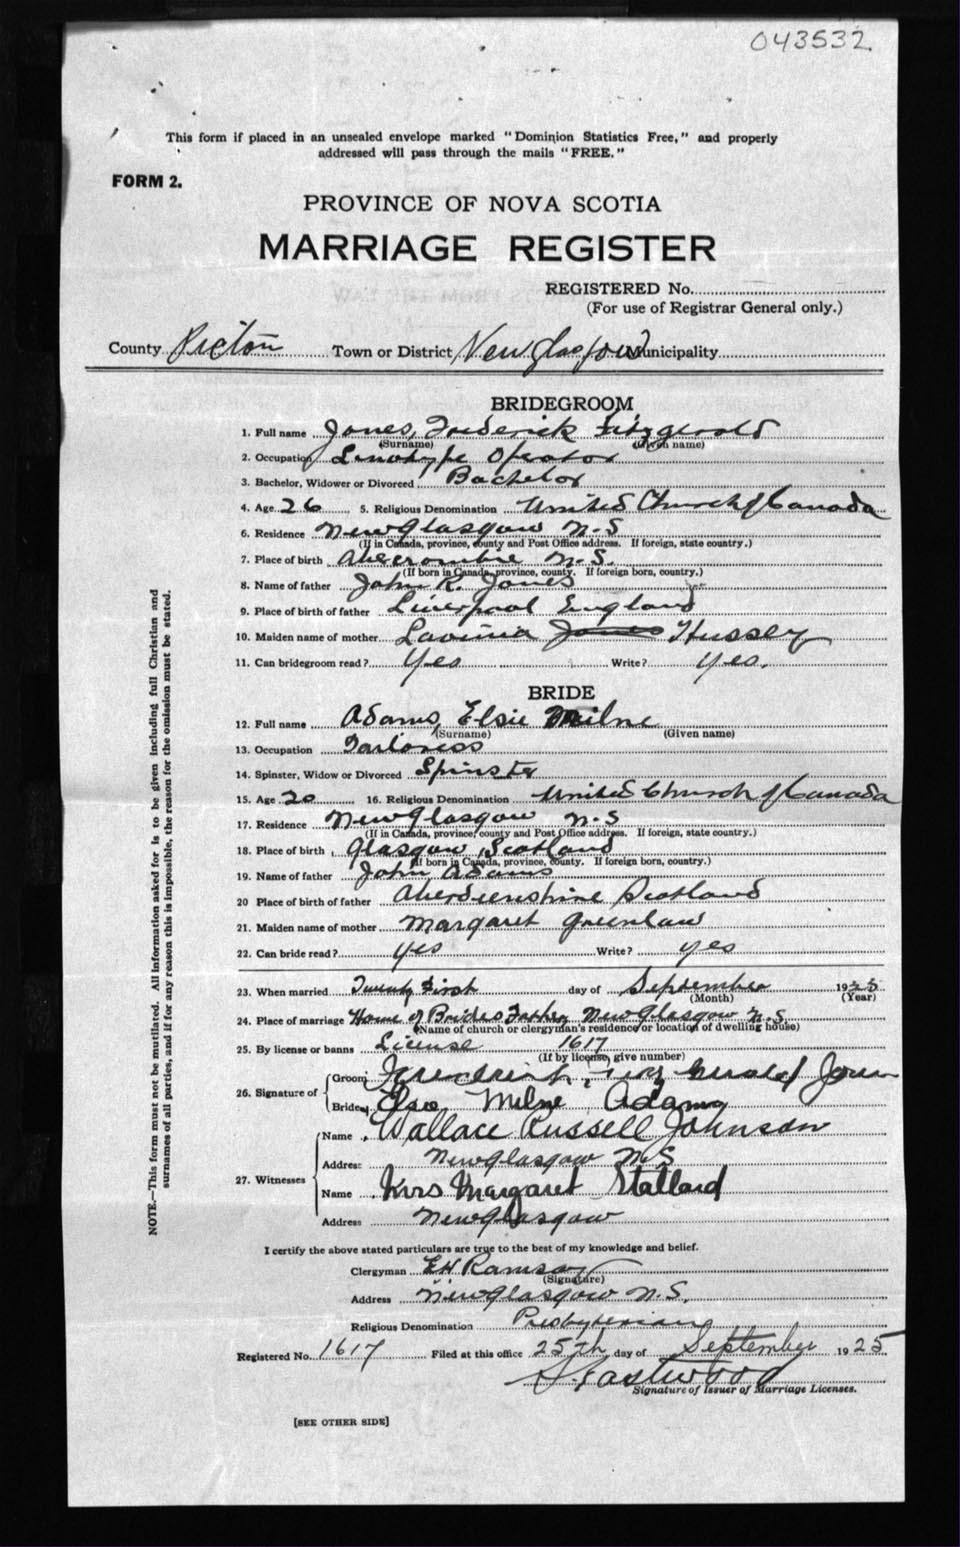 043532
This form if placed in an unsealed envelope marked "Dominion Statistics Free," and properly
addressed will pass through the mails "FREE."
FORM 2.
PROVINCE OF NOVA SCOTIA
MARRIAGE REGISTER
REGISTERED No.
(For use of Registrar General only.)
County Pictou Town or District New Glasgow Municipality
BRIDEGROOM
1. Full name Jones, Frederick Fitzgerald
(Surname) (Given name)
2. Occupation Linotype Operator
3. Bachelor, Widower or Divorced Bachelor
4. Age 26 5. Religious Denomination United Church of Canada
6. Residence New Glasgow N.S
(If in Canada, province, county and Post Office address. If foreign, state country.)
7. Place of birth Abercrombie N.S.
(If born in Canada, province, county. If foreign born, country.)
8. Name of father John R. Jones
9. Place of birth of father Liverpool England
10. Maiden name of mother Lavinia Jones Hussey
11. Can bridegroom read? Yes Write? Yes.
BRIDE
12. Full name Adams, Elsie Milne
(Surname) (Given name)
13. Occupation Tailoress
14. Spinster, Widow or Divorced Spinster
15. Age 20 16. Religious Denomination United Church of Canada
17. Residence New Glasgow N.S
(If in Canada, province, county and Post Office address. If foreign, state country.)
18. Place of birth Glasgow, Scotland
(If born in Canada, province, county. If foreign born, country.)
19. Name of father John Adams
20 Place of birth of father Aberdeenshire Scotland
21. Maiden name of mother Margaret Greenlaw
22. Can bride read? Yes Write? yes
23. When married Twenty First day of September 1925
(Month) (Year)
24. Place of marriage Home of Brides Father, New Glasgow N.S
(Name of church or clergyman's residence or location of dwelling house)
25. By license or banns License 1617
(If by license, give number)
26. Signature of Groom Frederick Fitz Gerald Jones
Bride Elsie Milne Adams
27. Witnesses Name Wallace Russell Johnson
Address New Glasgow N.S
Name Mrs Margaret Stallard
Address New Glasgow
I certify the above stated particulars are true to the best of my knowledge and belief.
Clergyman E H Ramsay
(Signature)
Address New Glasgow N.S.
Religious Denomination Presbyterian
Registered No. 1617 Filed at this office 25th day of September 1925
Eastwood
Signature of Issuer of Marriage Licenses.
[SEE OTHER SIDE]
NOTE.—This form must not be mutilated. All information asked for is to be given including full Christian and
surnames of all parties, and if for any reason this is impossible, the reason for the omission must be stated.